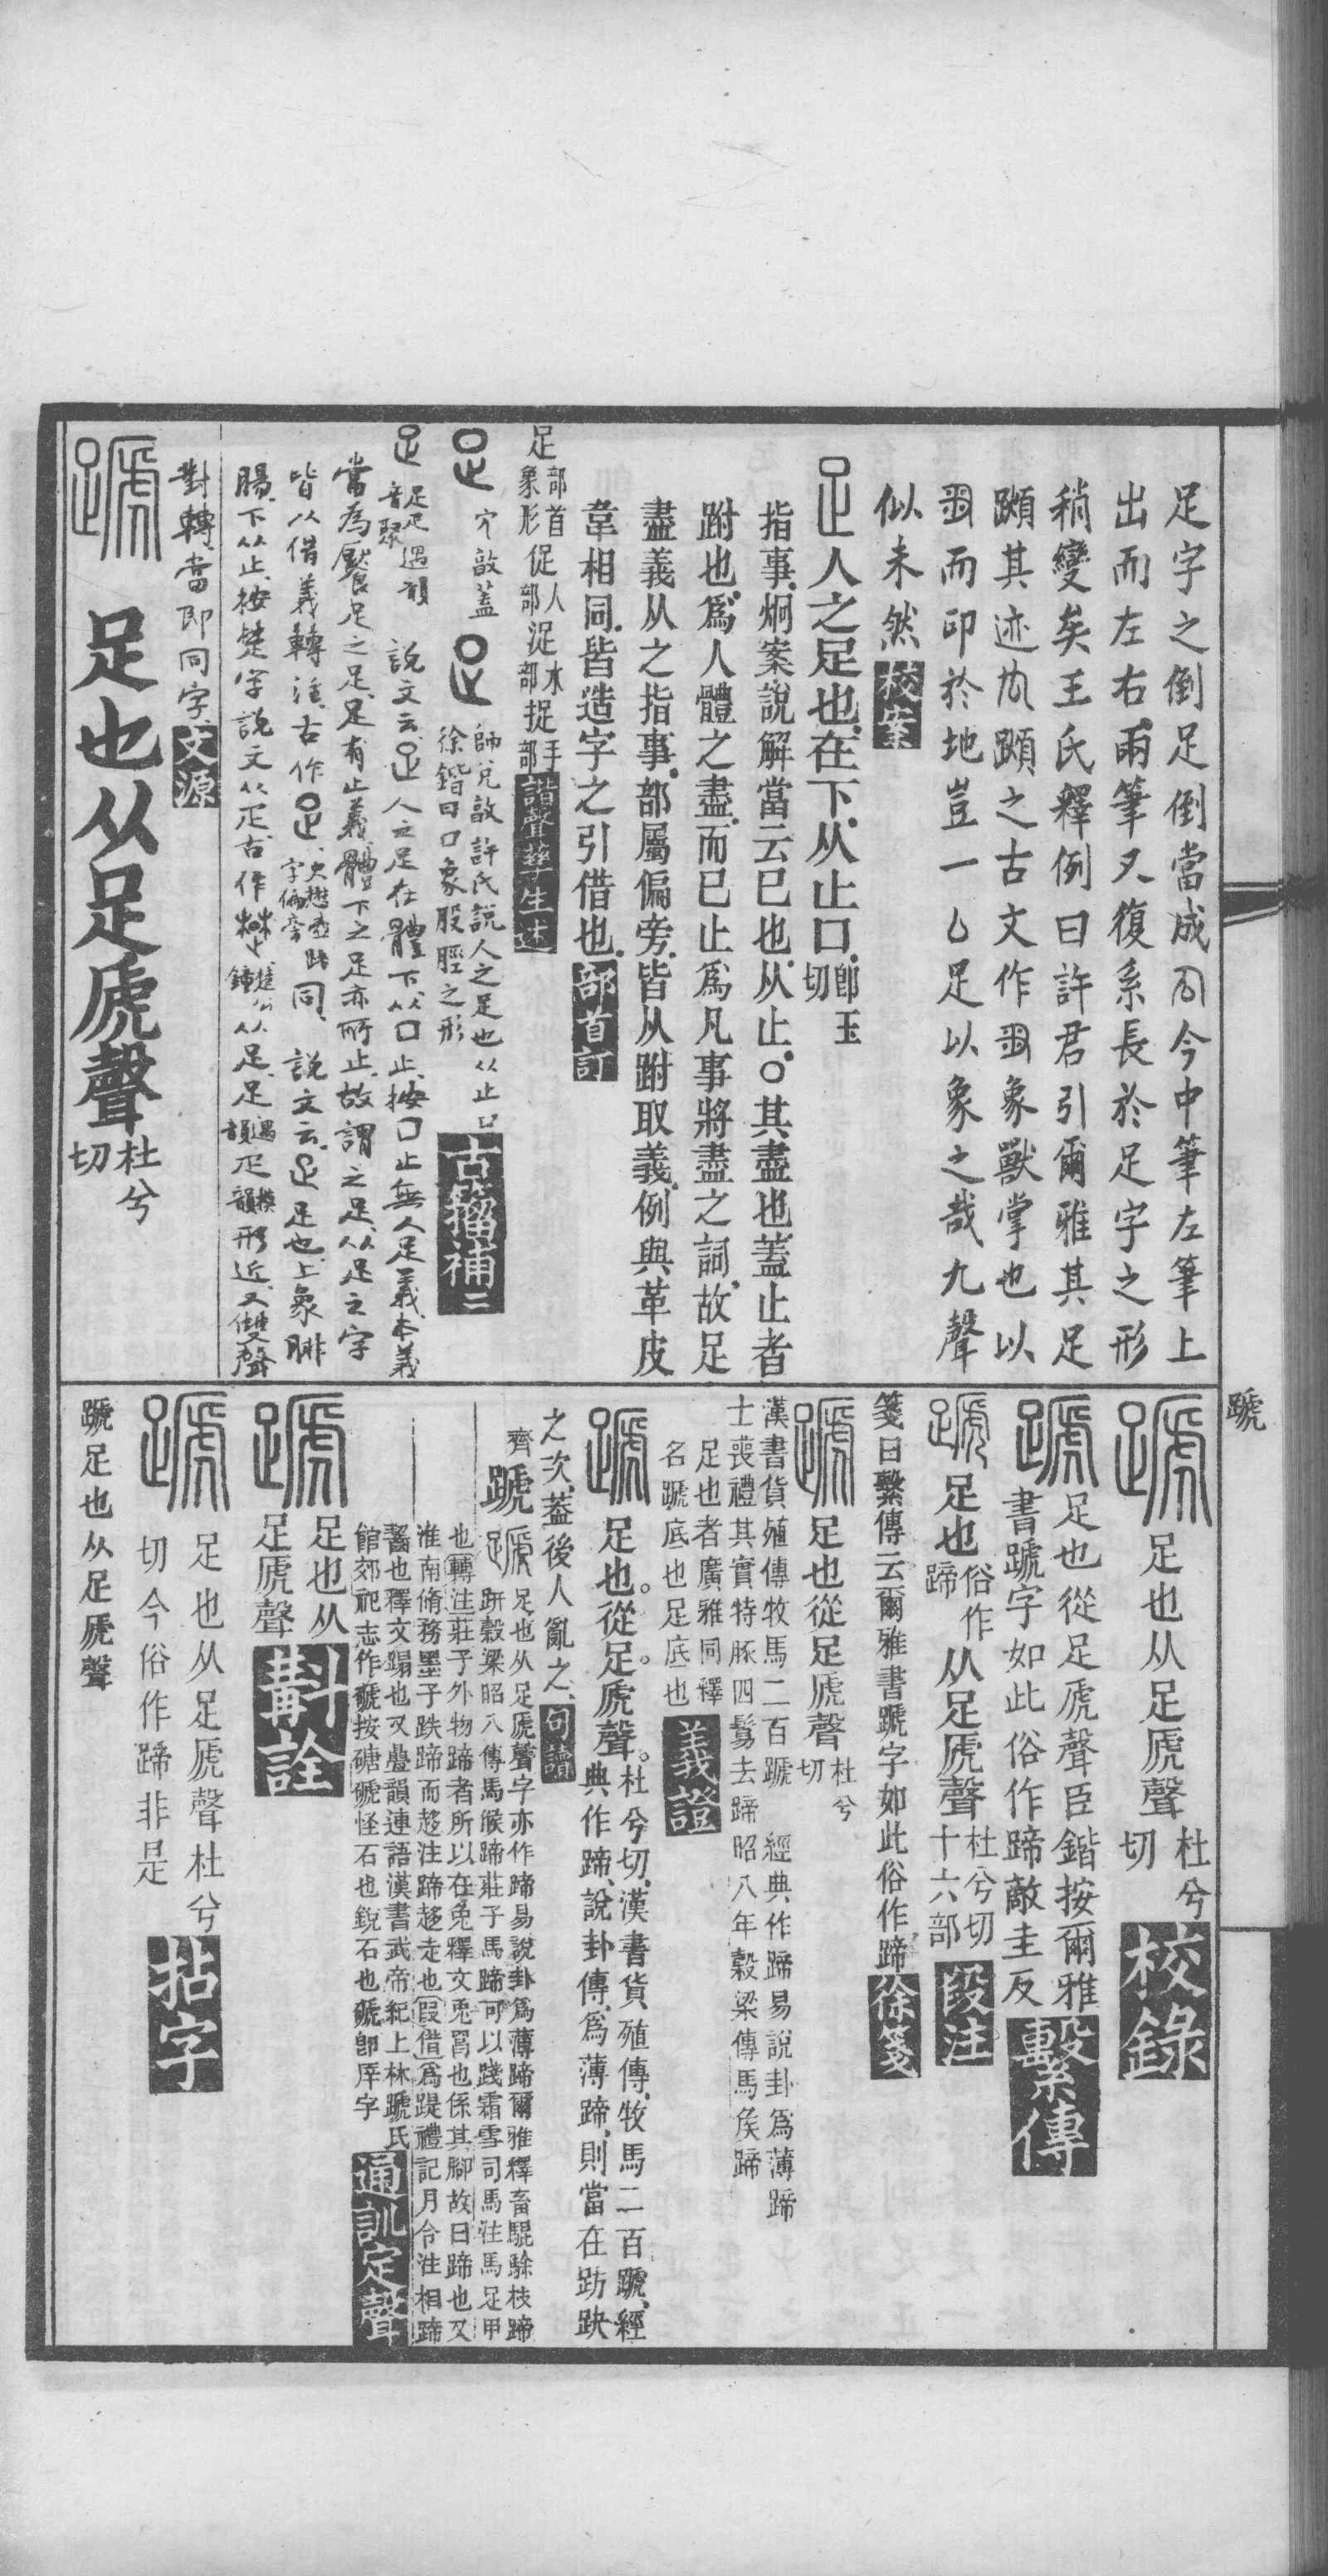 足字之倒足倒當成𠯁今中筆左筆上
出而左右兩筆又復系長於足字之形
稍變矣王氏釋例曰許君引爾雅其足
蹞其迹厹蹞之古文作𥜿象獸掌也以
而印於地豈一乙足以象之哉九聲
似未然校案
人之足也在下从止口卽玉切
指事炯案說解當云巳也从止○其盡也蓋止者
跗也爲人體之盡而已止爲凡事將盡之詞故足
盡義从之指事部屬偏旁皆从跗取義例與革皮
韋相同皆造字之引借也部首訂
足部首象形促人部浞水部捉手部諧聲孳生述
穴敔蓋 師兌敔許氏說人之足也从止口
徐鍇曰口象股脛之形古籀補二
足足遇韻音聚 說文云人之足在體下从口止按口止無人足義本義
當爲饜足之足足有止義體下之足亦所止故謂之足从足之字
皆以借義轉注古作同 說文云足也上象腓
腸下从止按楚字說文从疋古作从足足遇韻疋模韻形近又雙聲
對轉當即同字文源
足也从足虒聲杜兮切
蹏
足也从足虒聲杜兮切校錄
足也從足虒聲臣鍇按爾雅
書蹏字如此俗作蹄敵圭反繫傳
足也俗作蹄从足虒聲杜兮切十六部段注
箋曰繫傳云爾雅書蹏字如此俗作蹄徐箋
足也從足虒聲杜兮切
漢書貨殖傳牧馬二百蹏 經典作蹄易說卦爲薄蹄
士喪禮其實特豚四鬄去蹄昭八年穀梁傳馬矦蹄
足也者廣雅同釋
名蹏底也足底也義證
足也從足虒聲杜兮切漢書貨殖傳牧馬二百蹏經
典作蹄說卦傳爲薄蹄則當在趽趹
之次蓋後人亂之句讀
齊蹏足也从足虒聲字亦作蹄易說卦爲薄蹄爾雅釋畜騉駼枝蹄
趼穀梁昭八傳馬候蹄莊子馬蹄可以踐霜雪司馬注馬足甲
也轉注莊子外物蹄者所以在兔釋文兎罥也係其腳故曰蹄也又
淮南脩務墨子跌蹄而趍注蹄趍走也叚借爲踶禮記月令注相蹄
齧也釋文蹋也又疊韻連語漢書武帝紀上林蹏氏
館郊祀志作磃按磄磃怪石也銳石也磃卽厗字通訓定聲
足也从
足虒聲斠詮
足也从足虒聲杜兮
切今俗作蹄非是拈字
蹏足也从足虒聲